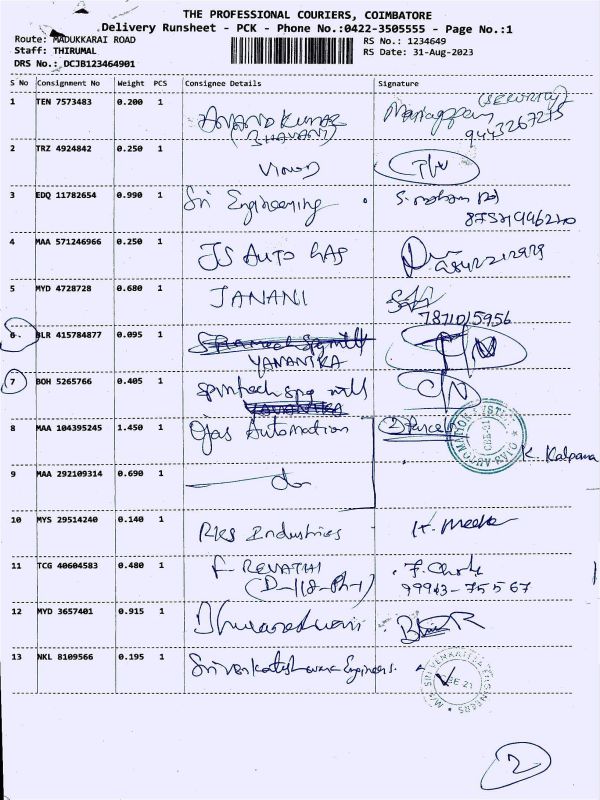 THE PROFESSIONAL COURIERS, COIMBATORE
Delivery Runsheet - PCK - Phone No.:0422-3505555 - Page No.:1
Route: MADUKKARAI ROAD RS No.: 1234649
Staff: THIRUMAL RS Date: 31-Aug-2023
DRS No.: DCJB123464901
S No Consignment No Weight PCS Consignee Details Signature
1 TEN 7573483 0.200 1 ANAND KUMAR (SECURITY)
(BHAVANI) Mariappan
2 TRZ 4924842 0.250 1 Vinod
3 EDQ 11782654 0.990 1 Sri Engineering
4 MAA 571246966 0.250 1 JS AUTO GAS
5 MYD 4728728 0.680 1 JANANI
7871015956
6 BLR 415784877 0.095 1
YAMANIKA
7 BOH 5265766 0.405 1 Spintech spg mills
8 MAA 104395245 1.450 1 Ojas Automation 2 Parcel
K. Kalpana
9 MAA 292109314 0.690 1 do
10 MYS 29514240 0.140 1 RKS Industries
11 TCG 40604583 0.480 1 F REVATHI
(D-118-Ph-1) 99943-75567
12 MYD 3657401 0.915 1 Bhuvaneshwari
13 NKL 8109566 0.195 1 Sri Venkateshwara Engineers.
2